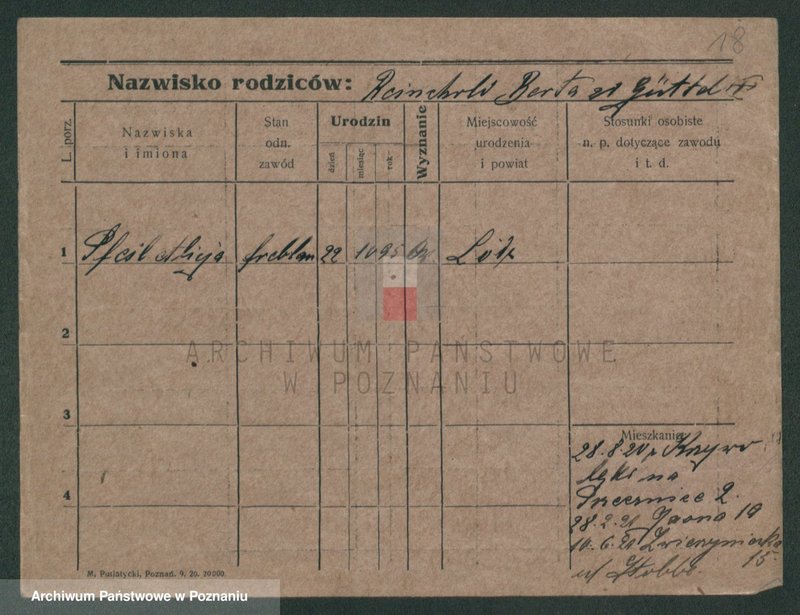 18
Nazwisko rodziców: Reinhold Berta
L. porz.
Nazwiska
i imiona
Stan
odn.
zawód
Urodzin
dzień
miesiąc
rok
Wyznanie
Miejscowość
urodzenia
i powiat
Stosunki osobiste
n. p. dotyczące zawodu
i t. d.
1 Pfeil Alicja freblan 22 10 95 Łódź
2
3
4
ARCHIWUM PAŃSTWOWE
W POZNANIU
Mieszkanie
28.8.20
na
2.
28.2.21 10
10.6.21 Zwierzyniecka
15.
M. Pusiatycki, Poznań. 9. 20. 20000.
Archiwum Państwowe w Poznaniu